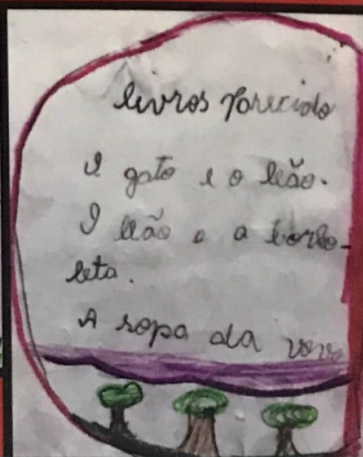 livros parecido
O gato e o leão.
O leão e a borbo-
leta.
A sopa da vovo